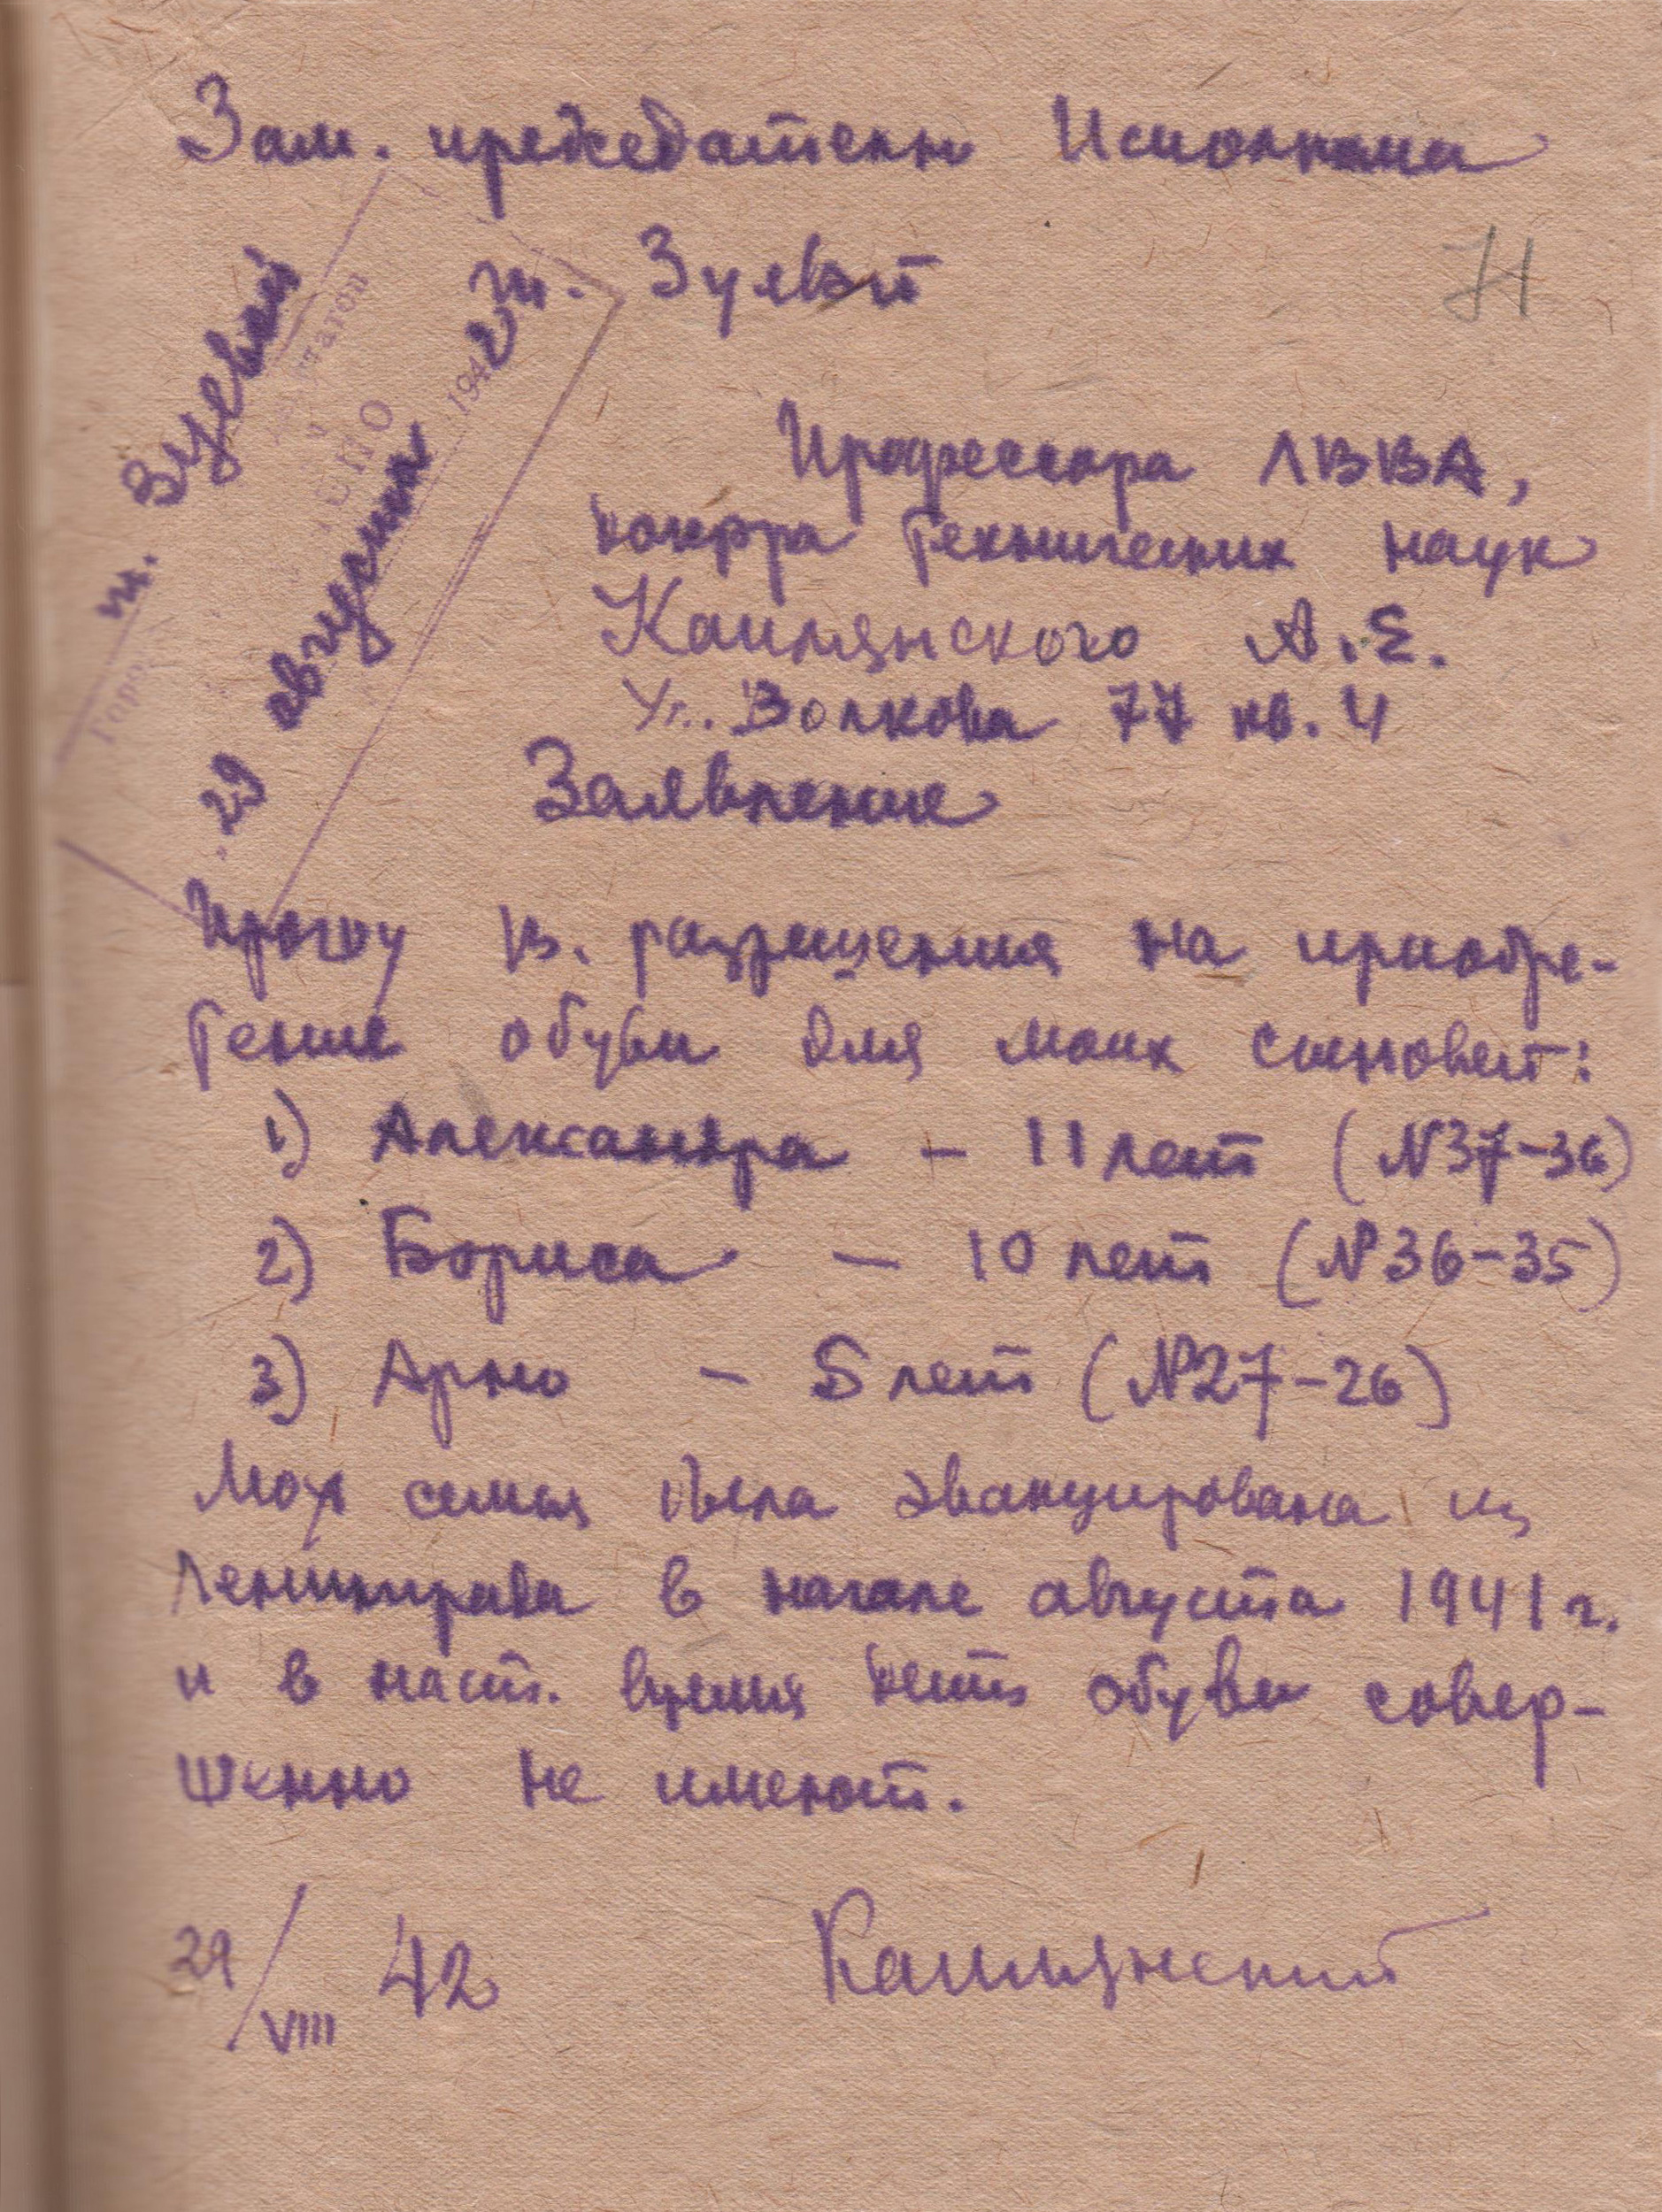 Зам. председателю Исполкома
т. Зуевой
Н
т. Зуевой
29 августа 1942 г.
Профессора ЛВВА,
доктора технических наук
Кашмянского А.Е.
Ул. Волкова 77 кв. 4
Заявление
Прошу В. разрешения на приобре-
тение обуви для моих сыновей:
1) Александра – 11 лет (№37-36)
2) Бориса – 10 лет (№36-35)
3) Арно – 5 лет (№27-26)
Моя семья была эвакуирована из
Ленинграда в начале августа 1941 г.
и в наст. время дети обуви совер-
шенно не имеют.
29/VIII 42